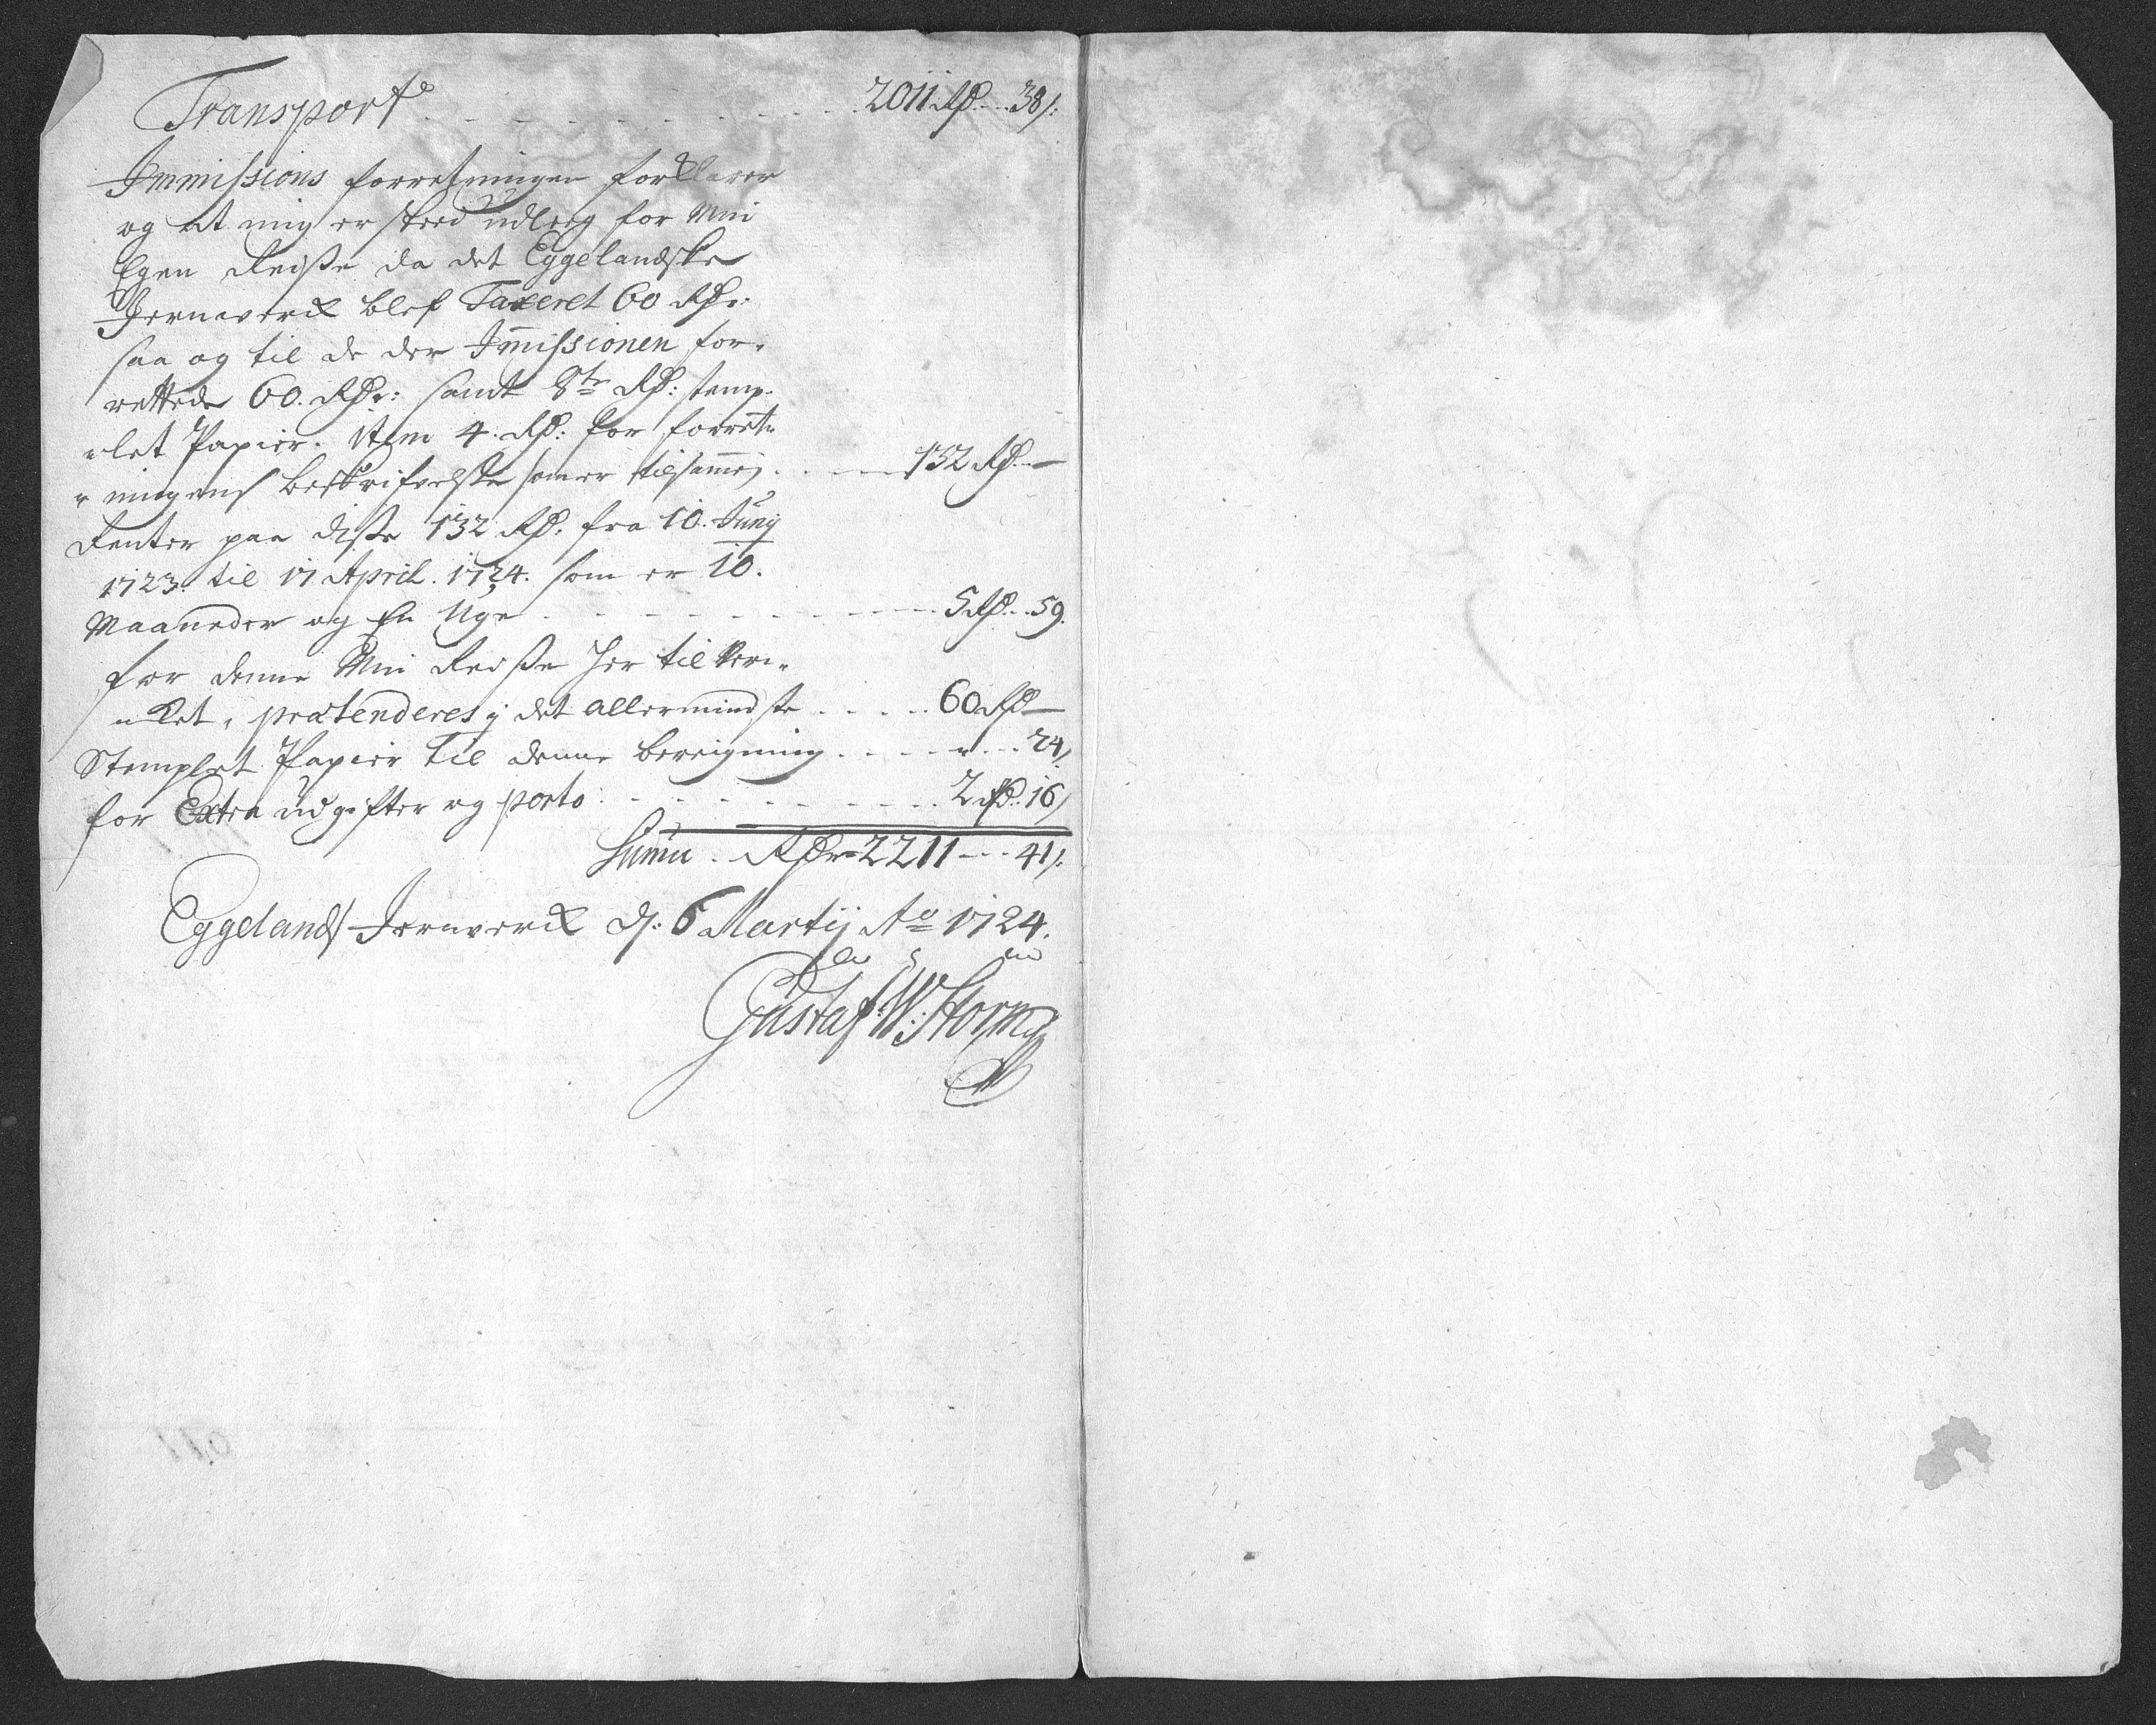 Transport . . . . . . . . . . 2011 Rd. - 38 s:
Immissions forretningen forklarer
og at mig er skeed udleg for Min
Egen Reiße da det Eggelandske
Jernverck blef Taxeret 60 Rdr:
saa og til de der Immissionen for-
rettede 60. Rdr: samt 8te Rd: stemp-
-let Papier. item 4. Rd: for forret-
-ningens beskrifvelße som er tilsammen . . - 132 Rd. -
Renter paa diße 132 Rd. fra 10. Junij
1723. til 17 April. 1724. som er 10.
Maaneder og En Uge . - - - - - 5 Rd. - 59.
for denne Min Reiße her til Ver-
-cket, prætenderes i det allermindste . . . . 60 Rd -
Stemplet Papier til denne bereigning . - - - " - - 24 s
for Extra udgifter og porto . - - - - . . 2 Rd. 16 s
Summa . Rdr 2211 - - 41 s:
Eggelands Jernverck d: 6 Martij Ao 1724.
Gustaf W: Storm